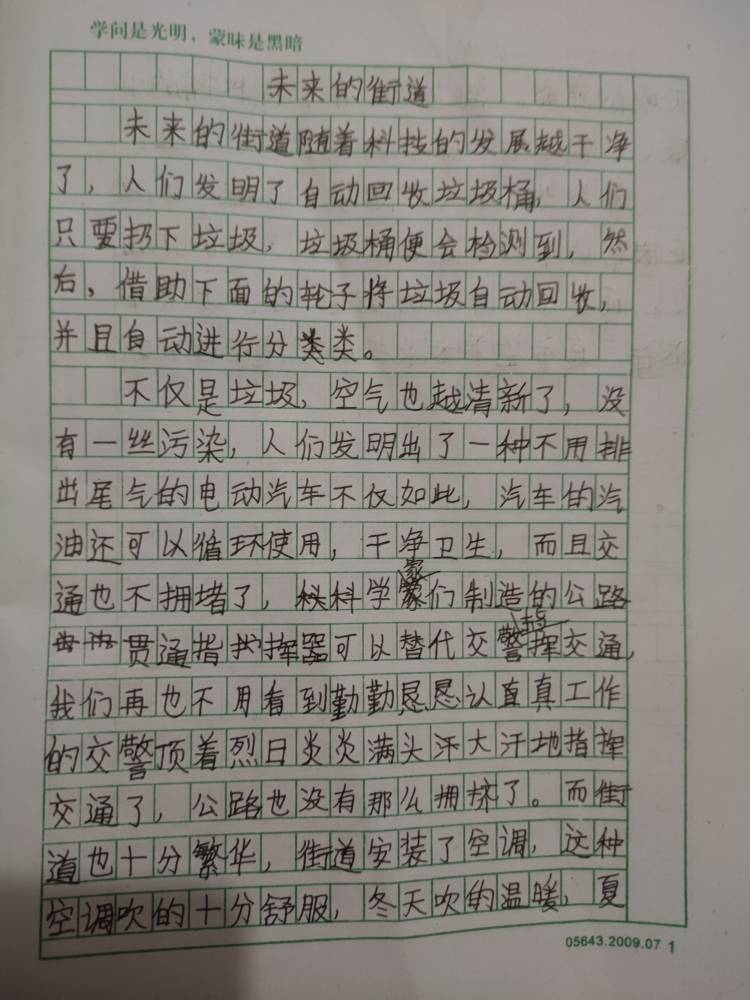 学问是光明，蒙昧是黑暗
未来的街道
未来的街道随着科技的发展越干净
了，人们发明了自动回收垃圾桶，人们
只要扔下垃圾，垃圾桶便会检测到，然
后、借助下面的轮子将垃圾自动回收，
并且自动进行分类。
不仅是垃圾，空气也越清新了，没
有一丝污染，人们发明出了一种不用排
出尾气的电动汽车不仅如此，汽车的汽
油还可以循环使用，干净卫生，而且交
通也不拥堵了，科学家们制造的公路
贯通指挥器可以替代交警指挥交通，
我们再也不用看到勤勤恳恳认直真工作
的交警顶着烈日炎炎满头汗大汗地指挥
交通了，公路也没有那么拥挤了。而街
道也十分繁华，街道安装了空调，这种
空调吹的十分舒服，冬天吹的温暖，夏
05643.2009.07 1